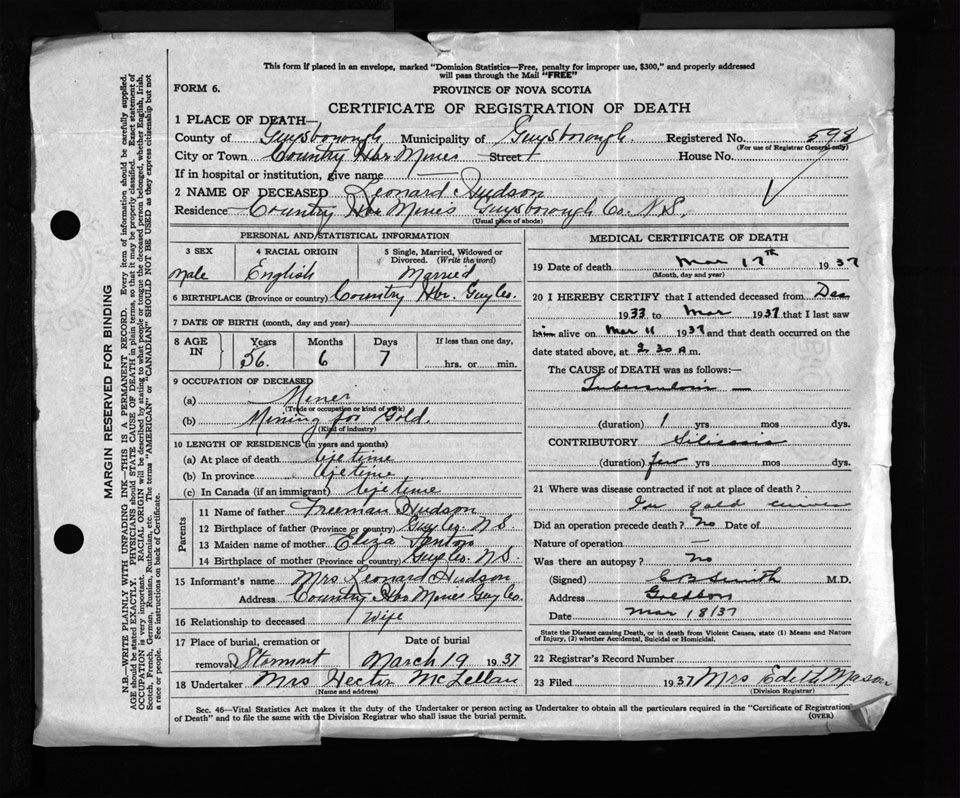 This form if placed in an envelope, marked "Dominion Statistics—Free, penalty for improper use, $300," and properly addressed
will pass through the Mail "FREE"
FORM 6.
PROVINCE OF NOVA SCOTIA
CERTIFICATE OF REGISTRATION OF DEATH
1 PLACE OF DEATH—
County of Guysborough Municipality of Guysborough. Registered No. 598
(For use of Registrar General only)
City or Town Country Hbr Mines Street House No.
If in hospital or institution, give name —
2 NAME OF DECEASED Leonard Hudson
Residence Country Hbr Mines Guysborough Co. N.S.
(Usual place of abode)
PERSONAL AND STATISTICAL INFORMATION
3 SEX 4 RACIAL ORIGIN 5 Single, Married, Widowed or
Divorced. (Write the word)
Male English Married
6 BIRTHPLACE (Province or country) Country Hbr. Guy Co.
7 DATE OF BIRTH (month, day and year)
8 AGE IN Years Months Days If less than one day,
56. 6 7 hrs. or min.
9 OCCUPATION OF DECEASED
(a) Miner
(Trade or occupation or kind of work)
(b) Mining for Gold.
(Kind of industry)
10 LENGTH OF RESIDENCE (in years and months)
(a) At place of death life time
(b) In province life time
(c) In Canada (if an immigrant) life time
Parents
11 Name of father Freeman Hudson
12 Birthplace of father (Province or country) Guy Co. N S
13 Maiden name of mother Eliza Fenton
14 Birthplace of mother (Province or country) Guy Co. N S.
15 Informant's name Mrs Leonard Hudson
Address Country Hbr Mines Guy Co.
16 Relationship to deceased Wife
17 Place of burial, cremation or Date of burial
removal Stormont March 19 1937
18 Undertaker Mrs Hector McLellan
(Name and address)
MEDICAL CERTIFICATE OF DEATH
19 Date of death Mar 17th 1937
(Month, day and year)
20 I HEREBY CERTIFY that I attended deceased from Dec
1933 to Mar 1937 that I last saw
him alive on Mar 11 1937 and that death occurred on
date stated above, at 2.30 a m.
The CAUSE of DEATH was as follows:—
Tuberculosis —
(duration) 1 yrs mos dys.
CONTRIBUTORY Silicosis
(duration) few yrs mos dys.
21 Where was disease contracted if not at place of death?
In gold mines
Did an operation precede death? No Date of
Nature of operation —
Was there an autopsy? No
(Signed) C B Smith M.D.
Address Goldboro
Date Mar 18/37
State the Disease causing Death, or in death from Violent Causes, state (1) Means and Nature
of Injury, (2) whether Accidental, Suicidal or Homicidal.
22 Registrar's Record Number
23 Filed 1937 Mrs Edith Mason
(Division Registrar)
Sec. 46—Vital Statistics Act makes it the duty of the Undertaker or person acting as Undertaker to obtain all the particulars required in the "Certificate of Registration
of Death" and to file the same with the Division Registrar who shall issue the burial permit.
(OVER)
MARGIN RESERVED FOR BINDING
N.B.—WRITE PLAINLY WITH UNFADING INK—THIS IS A PERMANENT RECORD. Every item of information should be carefully supplied.
AGE should be stated EXACTLY. PHYSICIANS should STATE CAUSE OF DEATH in plain terms, so that it may be properly classified. Exact statement of
OCCUPATION is very important. RACIAL ORIGIN will be described by stating to what people or tongue the deceased person belonged, whether English, Irish,
Scotch, French, German, Russian, Ruthenian, etc. The terms "AMERICAN" or "CANADIAN" SHOULD NOT BE USED as they express citizenship but not
a race or people. See instructions on back of Certificate.